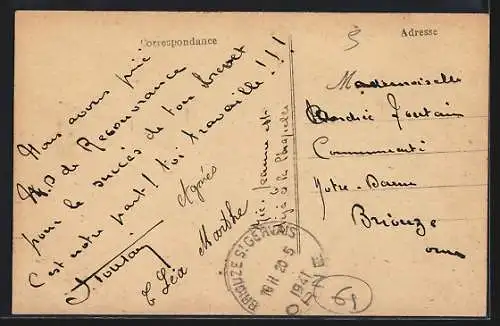 Correspondance
Nous avons prié
N.D de Recouvrance
pour le succès de ton brevet
C'est notre part! toi travaille!!!
Agnès
Marthe
& Léa
Jeanne est
déjà à la Chapelle
Adresse
5
Mademoiselle
Communauté
Notre-Dame
Briouze
Orne
BRIOUZE ST GERVAIS
16H 20
5
1941
ORNE
69